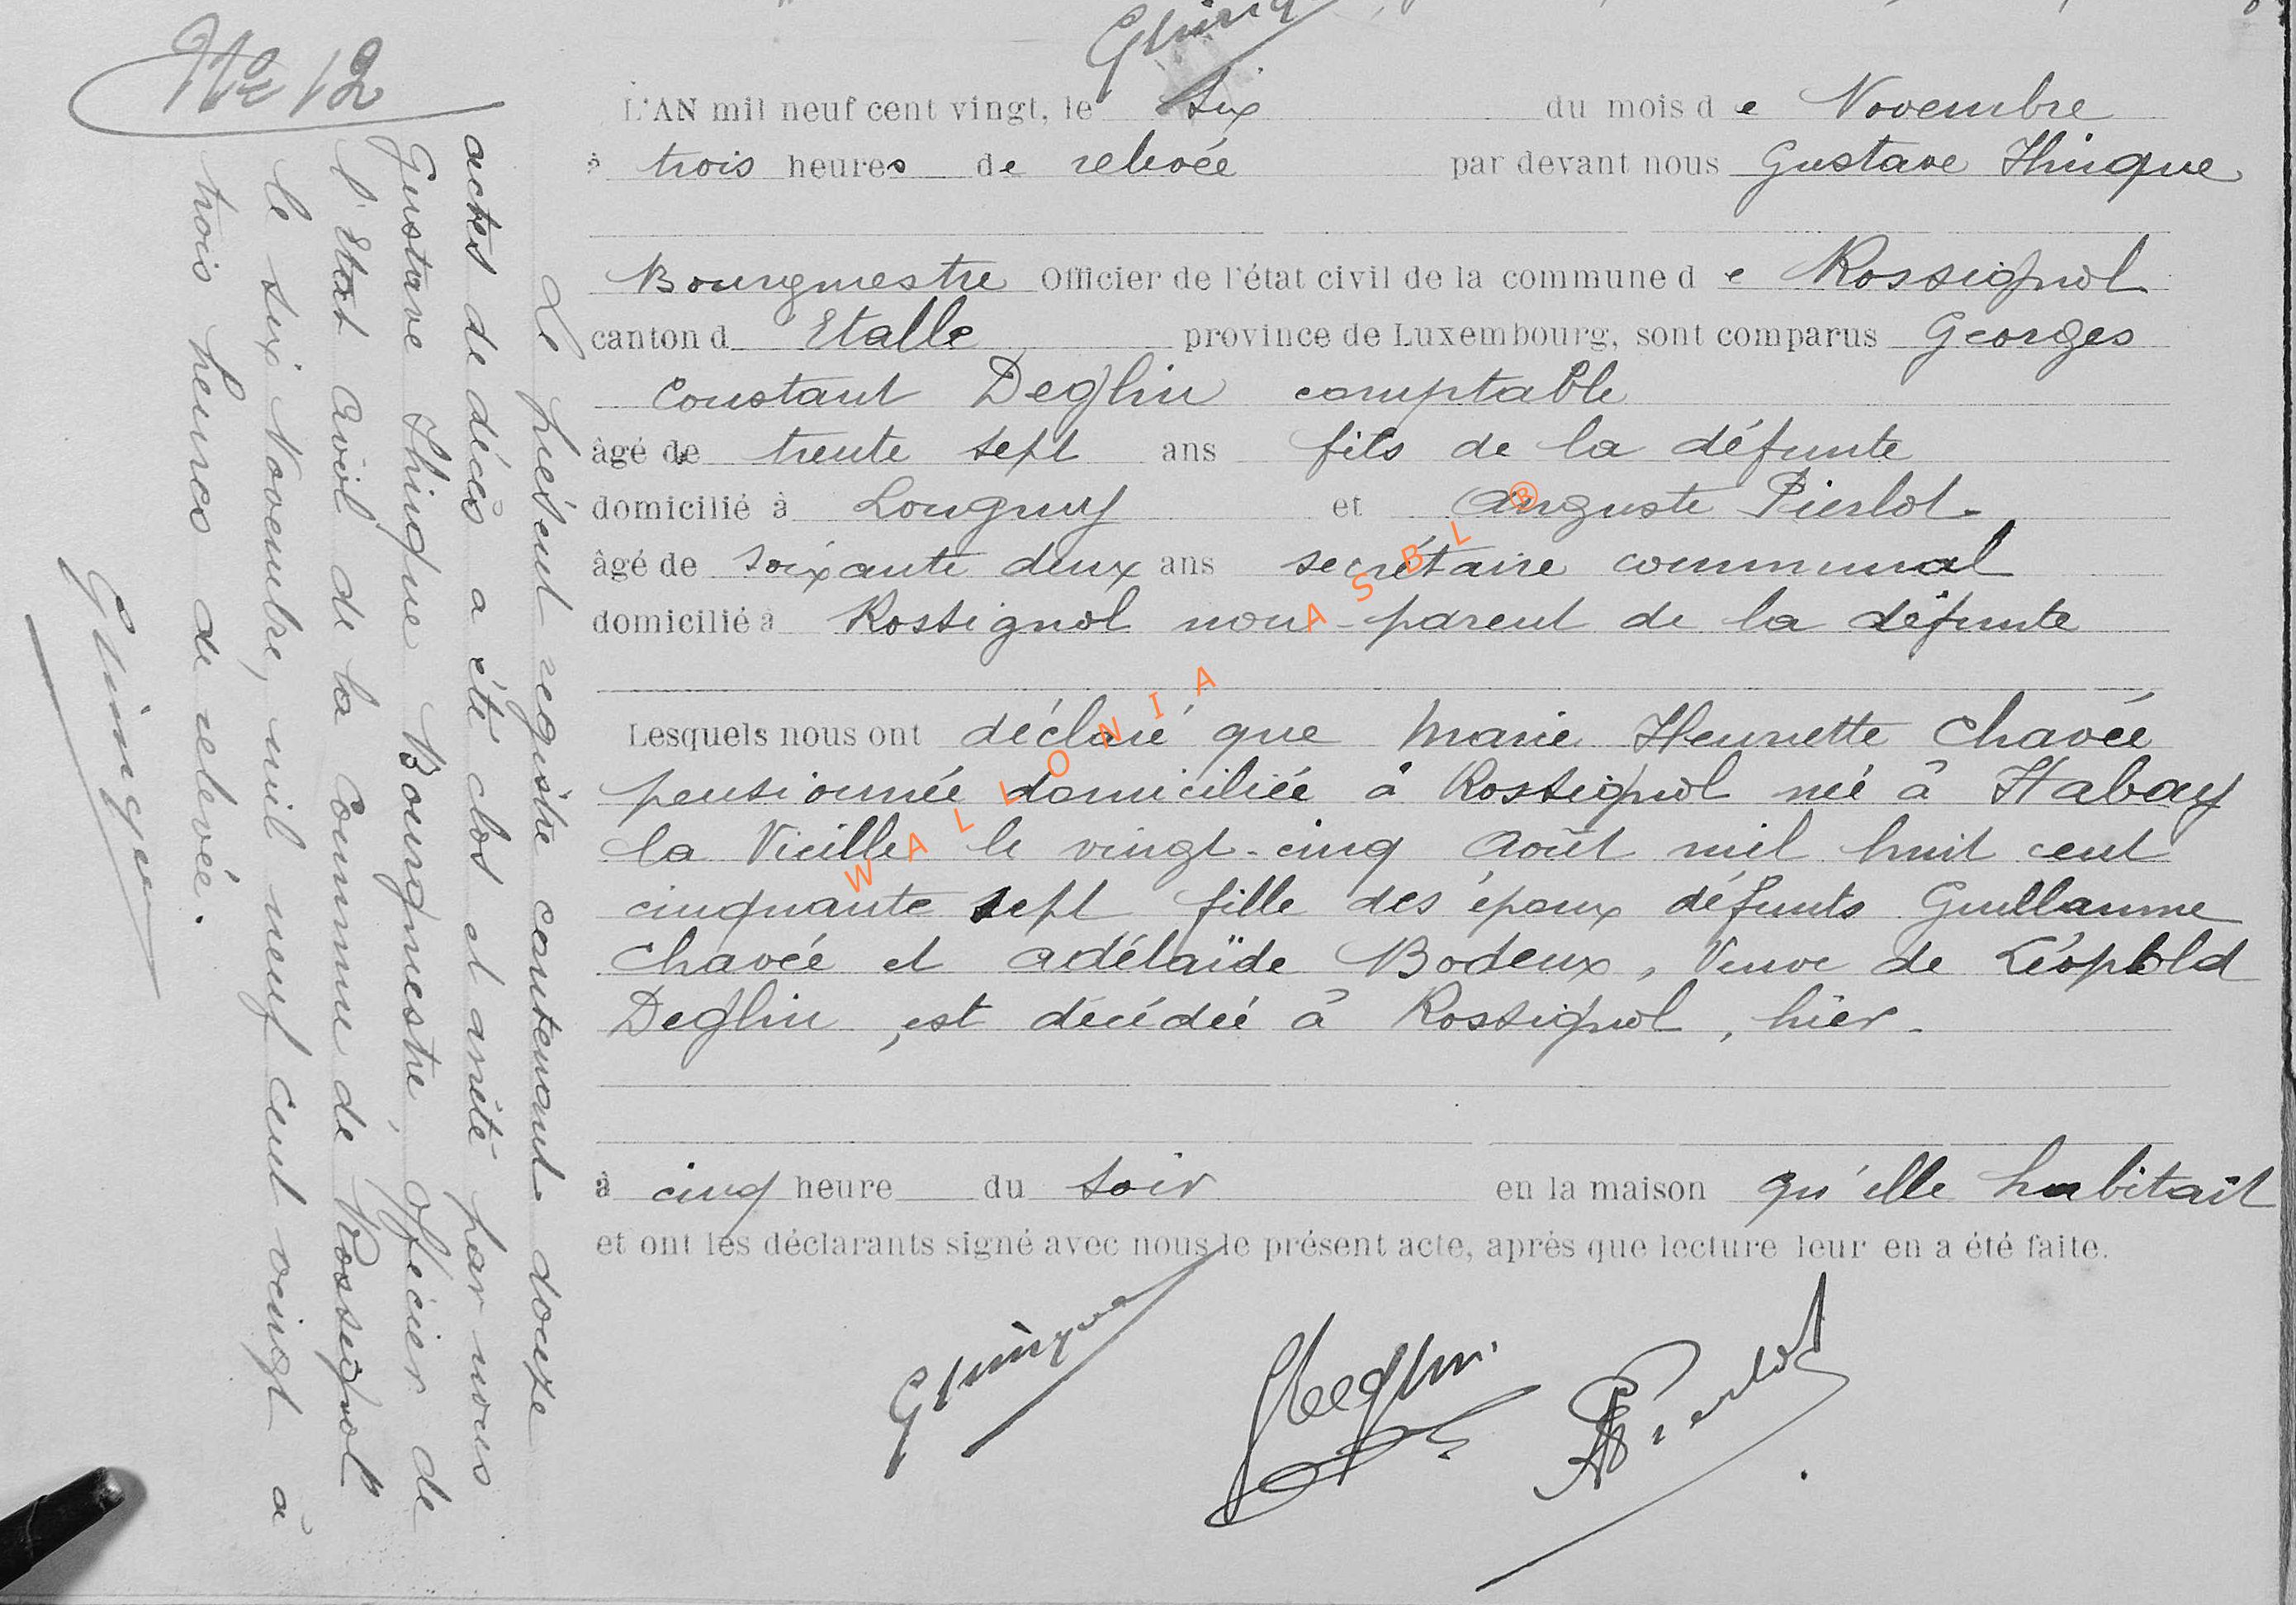 Nº 12
L'AN mil neuf cent vingt, le six du mois de Novembre
à trois heures de relevée par devant nous Gustave Hinque
Bourgmestre Officier de l'état civil de la commune de Rossignol
canton d Etalle province de Luxembourg, sont comparus Georges
Constant Deglin comptable
âgé de trente sept ans fils de la défunte
domicilié à Longwy et Auguste Pierlot
âgé de soixante deux ans secrétaire communal
domicilié à Rossignol non-parent de la défunte
Lesquels nous ont déclaré que Marie Henriette Chavée
pensionnée domiciliée à Rossignol né à Habay
la Vieille le vingt-cinq Août mil huit cent
cinquante sept fille des époux défunts Guillaume
Chavée et Adélaïde Bodeux, Veuve de Léopold
Deglin, est décédée à Rossignol, hier.
à cinq heure du soir en la maison qu'elle habitait
et ont les déclarants signé avec nous le présent acte, après que lecture leur en a été faite.
GHinque
GDeglin.
APierlot
Le présent registre contenant douze
actes de décès a été clos et arrêté par nous
Gustave Hinque Bourgmestre, officier de
l'Etat civil de la Commune de Rossignol
le six Novembre, mil neuf cent vingt à
trois heures de relevée.
GHinque
WALLONIA ASBL ®